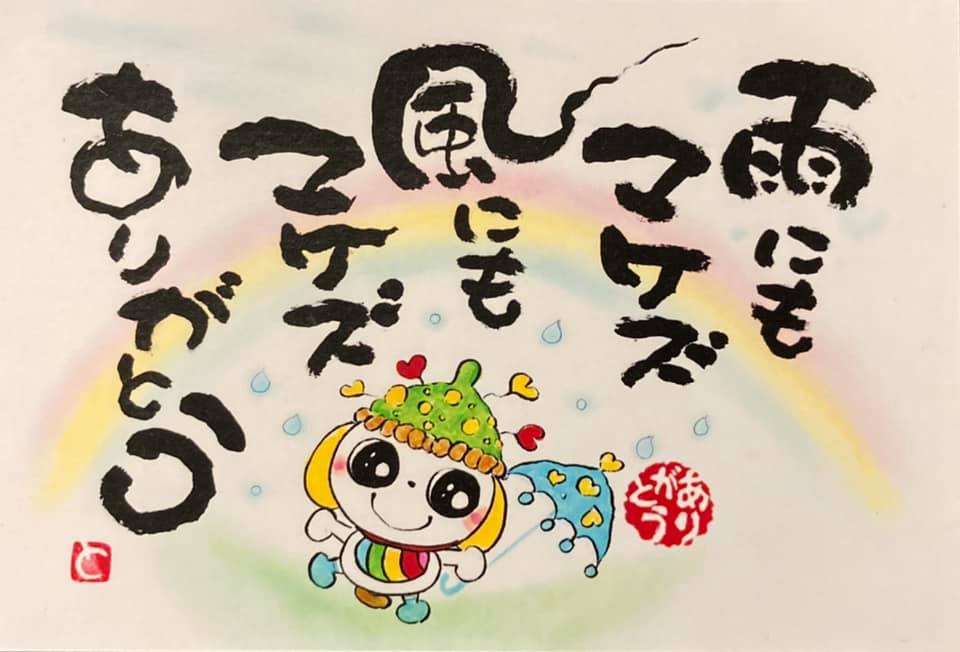 雨にも
マケズ
風にも
マケズ
ありがとう
ありがとう
と